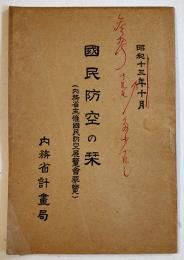 昭和十三年十月
國民防空の栞
(内務省主催國民防空展覽會要覽)
内務省計畫局